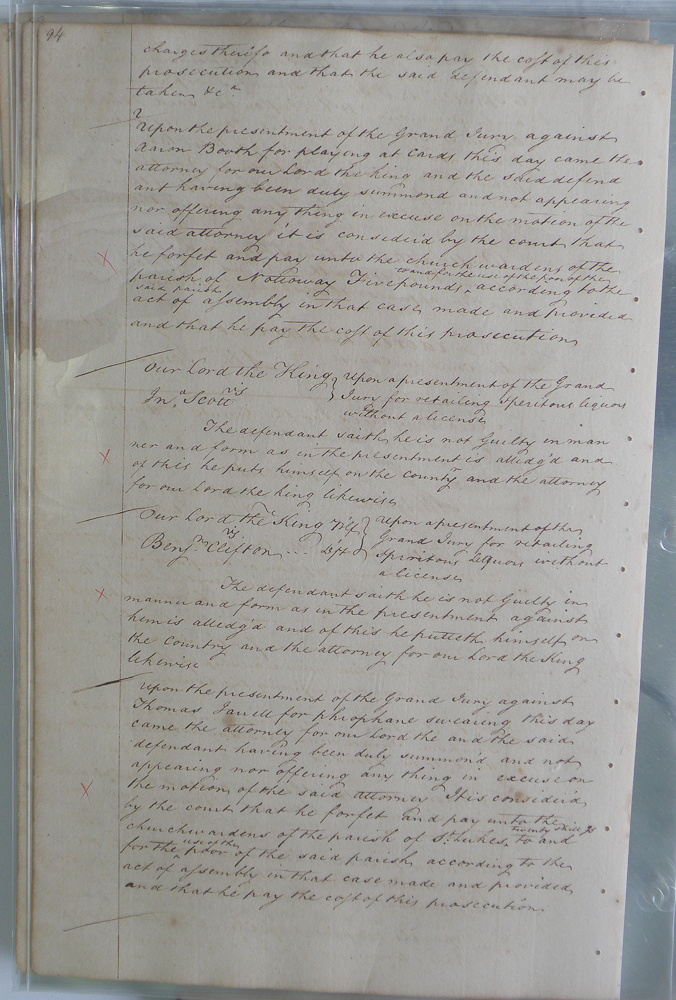 94
charges theirfo and that he also pay the cost of this
prosecution and that the said defendant may be
taken &c.a
Upon the presentment of the Grand Jury against
Aaron Booth for playing at Cards this day came the
attorney for our Lord the king and the said defend
ant having been duly summond and not appearing
nor offering any thing in excuse on the motion of the
said attorney it is consider'd by the court that
he forfet and pay unto the church wardens of the
to and for the use of the poor of the
parish of Nottoway Five pounds according to the
said parish
act of assembly in that case made and provided
and that he pay the cost of this prosecution
Our Lord the King } Upon a presentment of the Grand
vs
Jn.o Scott } Jury for retailing speritous liquors
without a license
The defendant saith he is not Guilty in man
ner and form as in the presentment is alledg'd and
of this he puts himself on the county and the attorney
for our Lord the king likewise
Our Lord the King Plt } Upon a presentment of the
vs
Grand Jury for retailing
Benj.n Clifton ... Deft } Spiritous Liquors without
a license
The defendant saith he is not Guilty in
manner and form as in the presentment against
him is alledg'd and of this he putteth himself on
the Country and the attorney for our Lord the King
likewise
Upon the presentment of the Grand Jury against
Thomas Jarell for phrophane swearing this day
came the attorney for our Lord the and the said
defendant having been duly summon'd and not
appearing nor offering any thing in excuse on
the motion of the said attorney It is consider'd
by the court that he forfet and pay unto the
twenty shill.gs
churchwardens of the parish of St. Lukes to and
use of the
for the poor of the said parish according to the
act of assembly in that case made and provided
and that he pay the cost of this prosecution